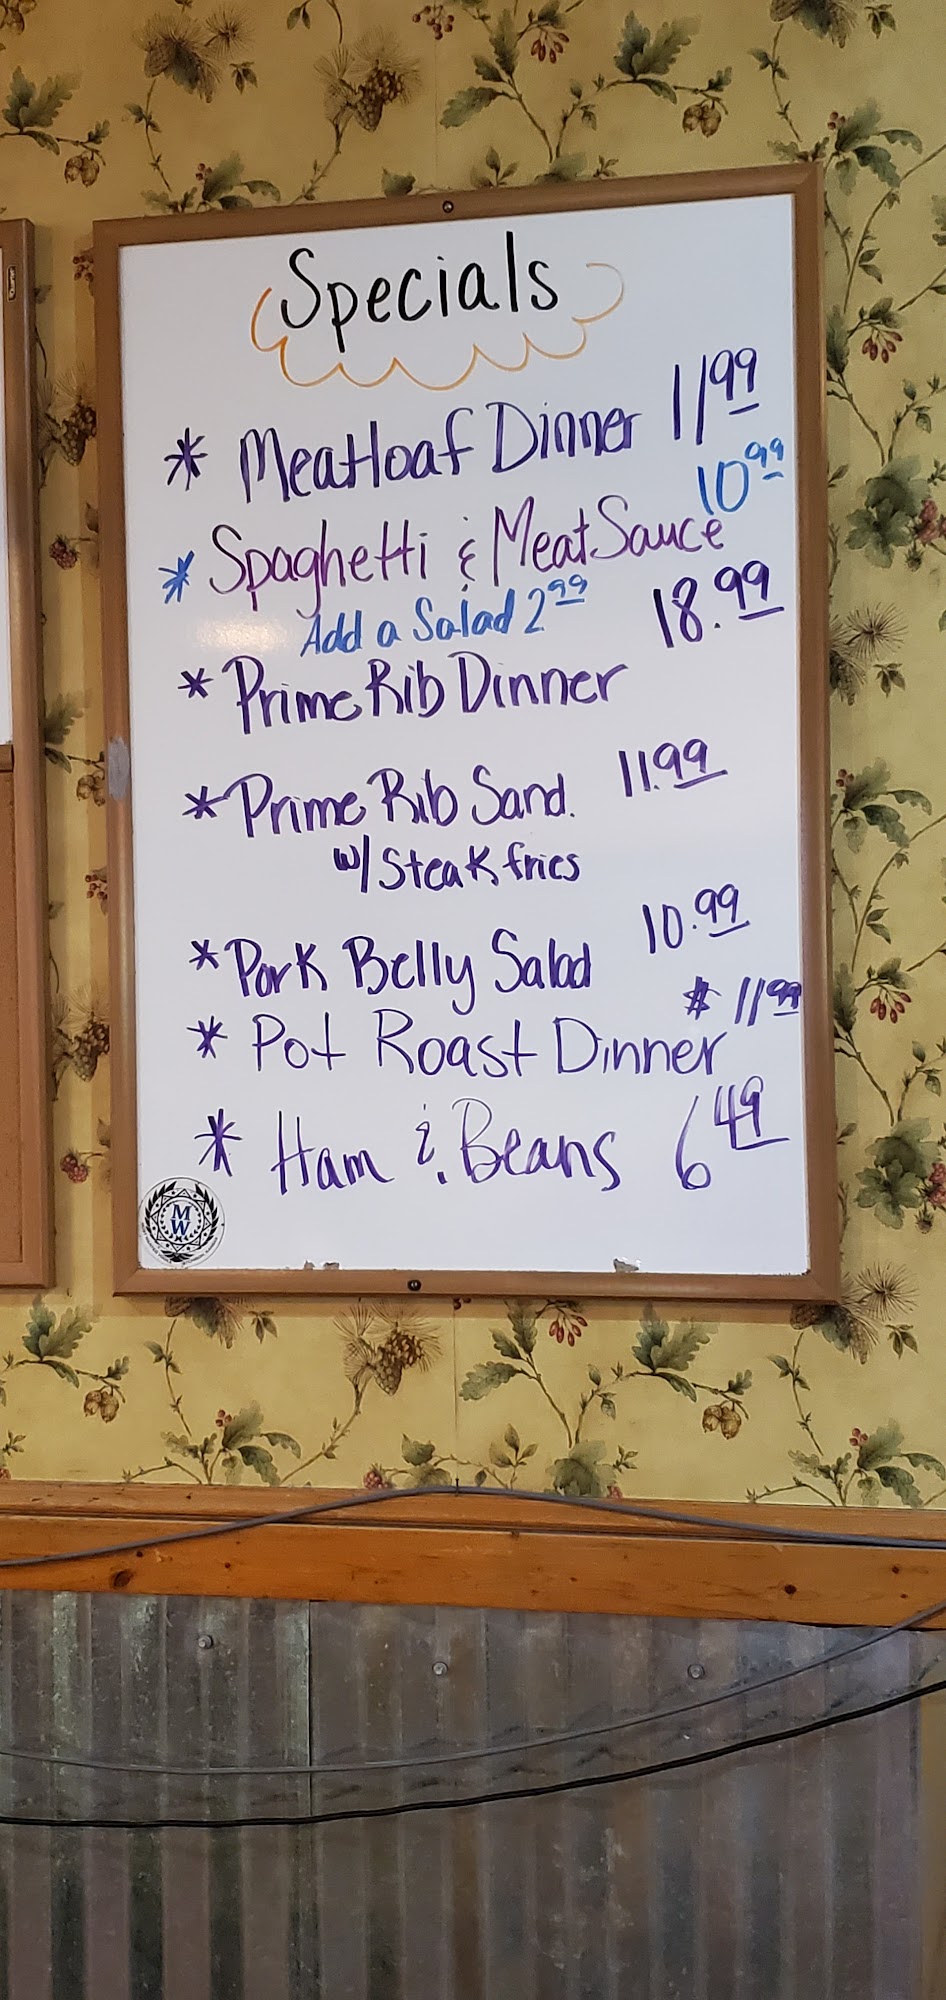 Specials
* Meatloaf Dinner 11.99
* Spaghetti & Meat Sauce 10.99
Add a Salad 2.99
* Prime Rib Dinner 18.99
* Prime Rib Sand. 11.99
w/ Steak fries
* Pork Belly Salad 10.99
* Pot Roast Dinner $11.99
* Ham & Beans 6.49
MW